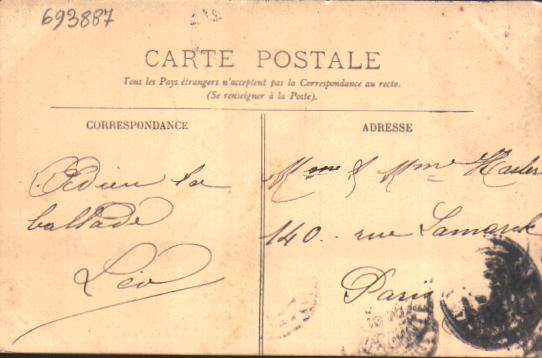 693887
CARTE POSTALE
Tous les Pays étrangers n'acceptent pas la Correspondance au recto.
(Se renseigner à la Poste).
CORRESPONDANCE
Adieu la
ballade
Léo
ADRESSE
Mme & Mme
140. rue Lamarck
Paris